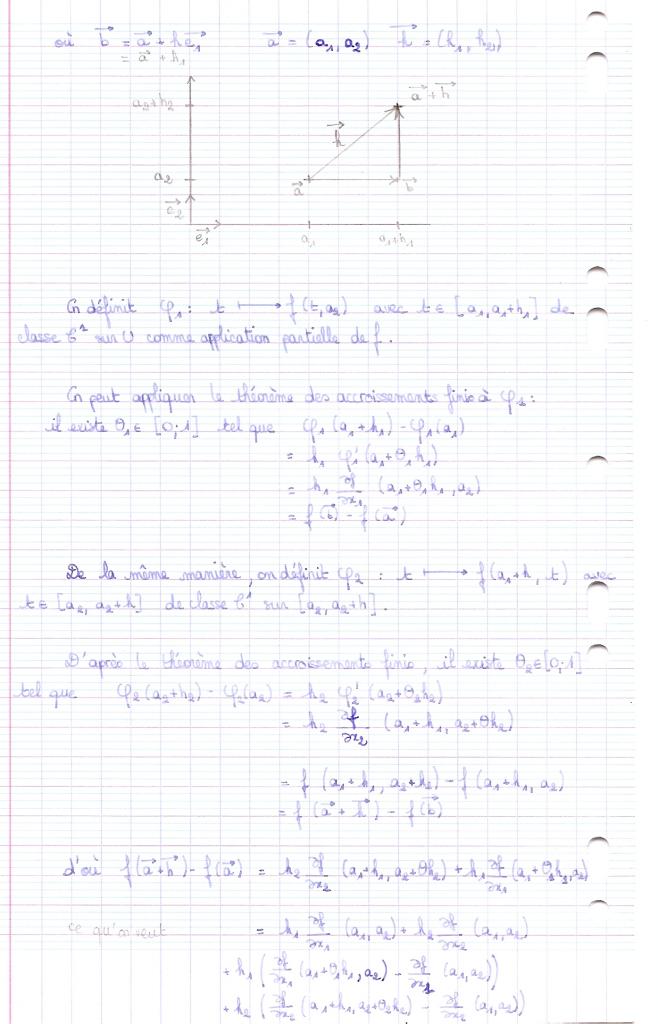 où b⃗ = a⃗ + h e⃗₁    a⃗ = (a₁, a₂)    h⃗ = (h₁, h₂)
= a⃗ + h₁
a₂+h₂
a⃗+h⃗
h⃗
a₂
a⃗
b⃗
e⃗₂
e⃗₁
a₁
a₁+h₁
On définit φ₁ : t ⟼ f(t, a₂) avec t ∈ [a₁, a₁+h₁] de
classe C¹ sur U comme application partielle de f.
On peut appliquer le théorème des accroissements finis à φ₁ :
il existe θ₁ ∈ [0;1] tel que φ₁(a₁+h₁) - φ₁(a₁)
= h₁ φ₁'(a₁+θ₁h₁)
= h₁ ∂f/∂x₁ (a₁+θ₁h₁, a₂)
= f(b⃗) - f(a⃗)
De la même manière, on définit φ₂ : t ⟼ f(a₁+h, t) avec
t ∈ [a₂, a₂+h] de classe C¹ sur [a₂, a₂+h].
D'après le théorème des accroissements finis, il existe θ₂∈[0;1]
tel que φ₂(a₂+h₂) - φ₂(a₂) = h₂ φ₂'(a₂+θ₂h₂)
= h₂ ∂f/∂x₂ (a₁+h₁, a₂+θh₂)
= f(a₁+h₁, a₂+h₂) - f(a₁+h₁, a₂)
= f(a⃗+h⃗) - f(b⃗)
d'où f(a⃗+h⃗) - f(a⃗) = h₂ ∂f/∂x₂ (a₁+h₁, a₂+θh₂) + h₁ ∂f/∂x₁ (a₁+θ₁h₁, a₂)
ce qu'on veut = h₁ ∂f/∂x₁ (a₁, a₂) + h₂ ∂f/∂x₂ (a₁, a₂)
+ h₁ (∂f/∂x₁ (a₁+θ₁h₁, a₂) - ∂f/∂x₁ (a₁, a₂))
+ h₂ (∂f/∂x₂ (a₁+h₁, a₂+θ₂h₂) - ∂f/∂x₂ (a₁, a₂))